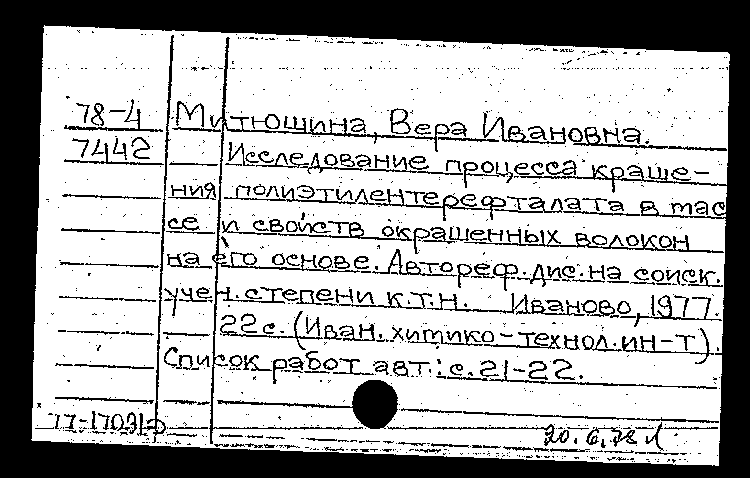 78-4 Митюшина, Вера Ивановна.
7442 Исследование процесса краше-
ния полиэтилентерефталата в мас
се и свойств окрашенных волокон
на его основе. Автореф. дис. на соиск.
учен. степени к.т.н. Иваново, 1977.
22 с. (Иван. химико-технол. ин-т).
Список работ авт.: с. 21-22.
20.6.78